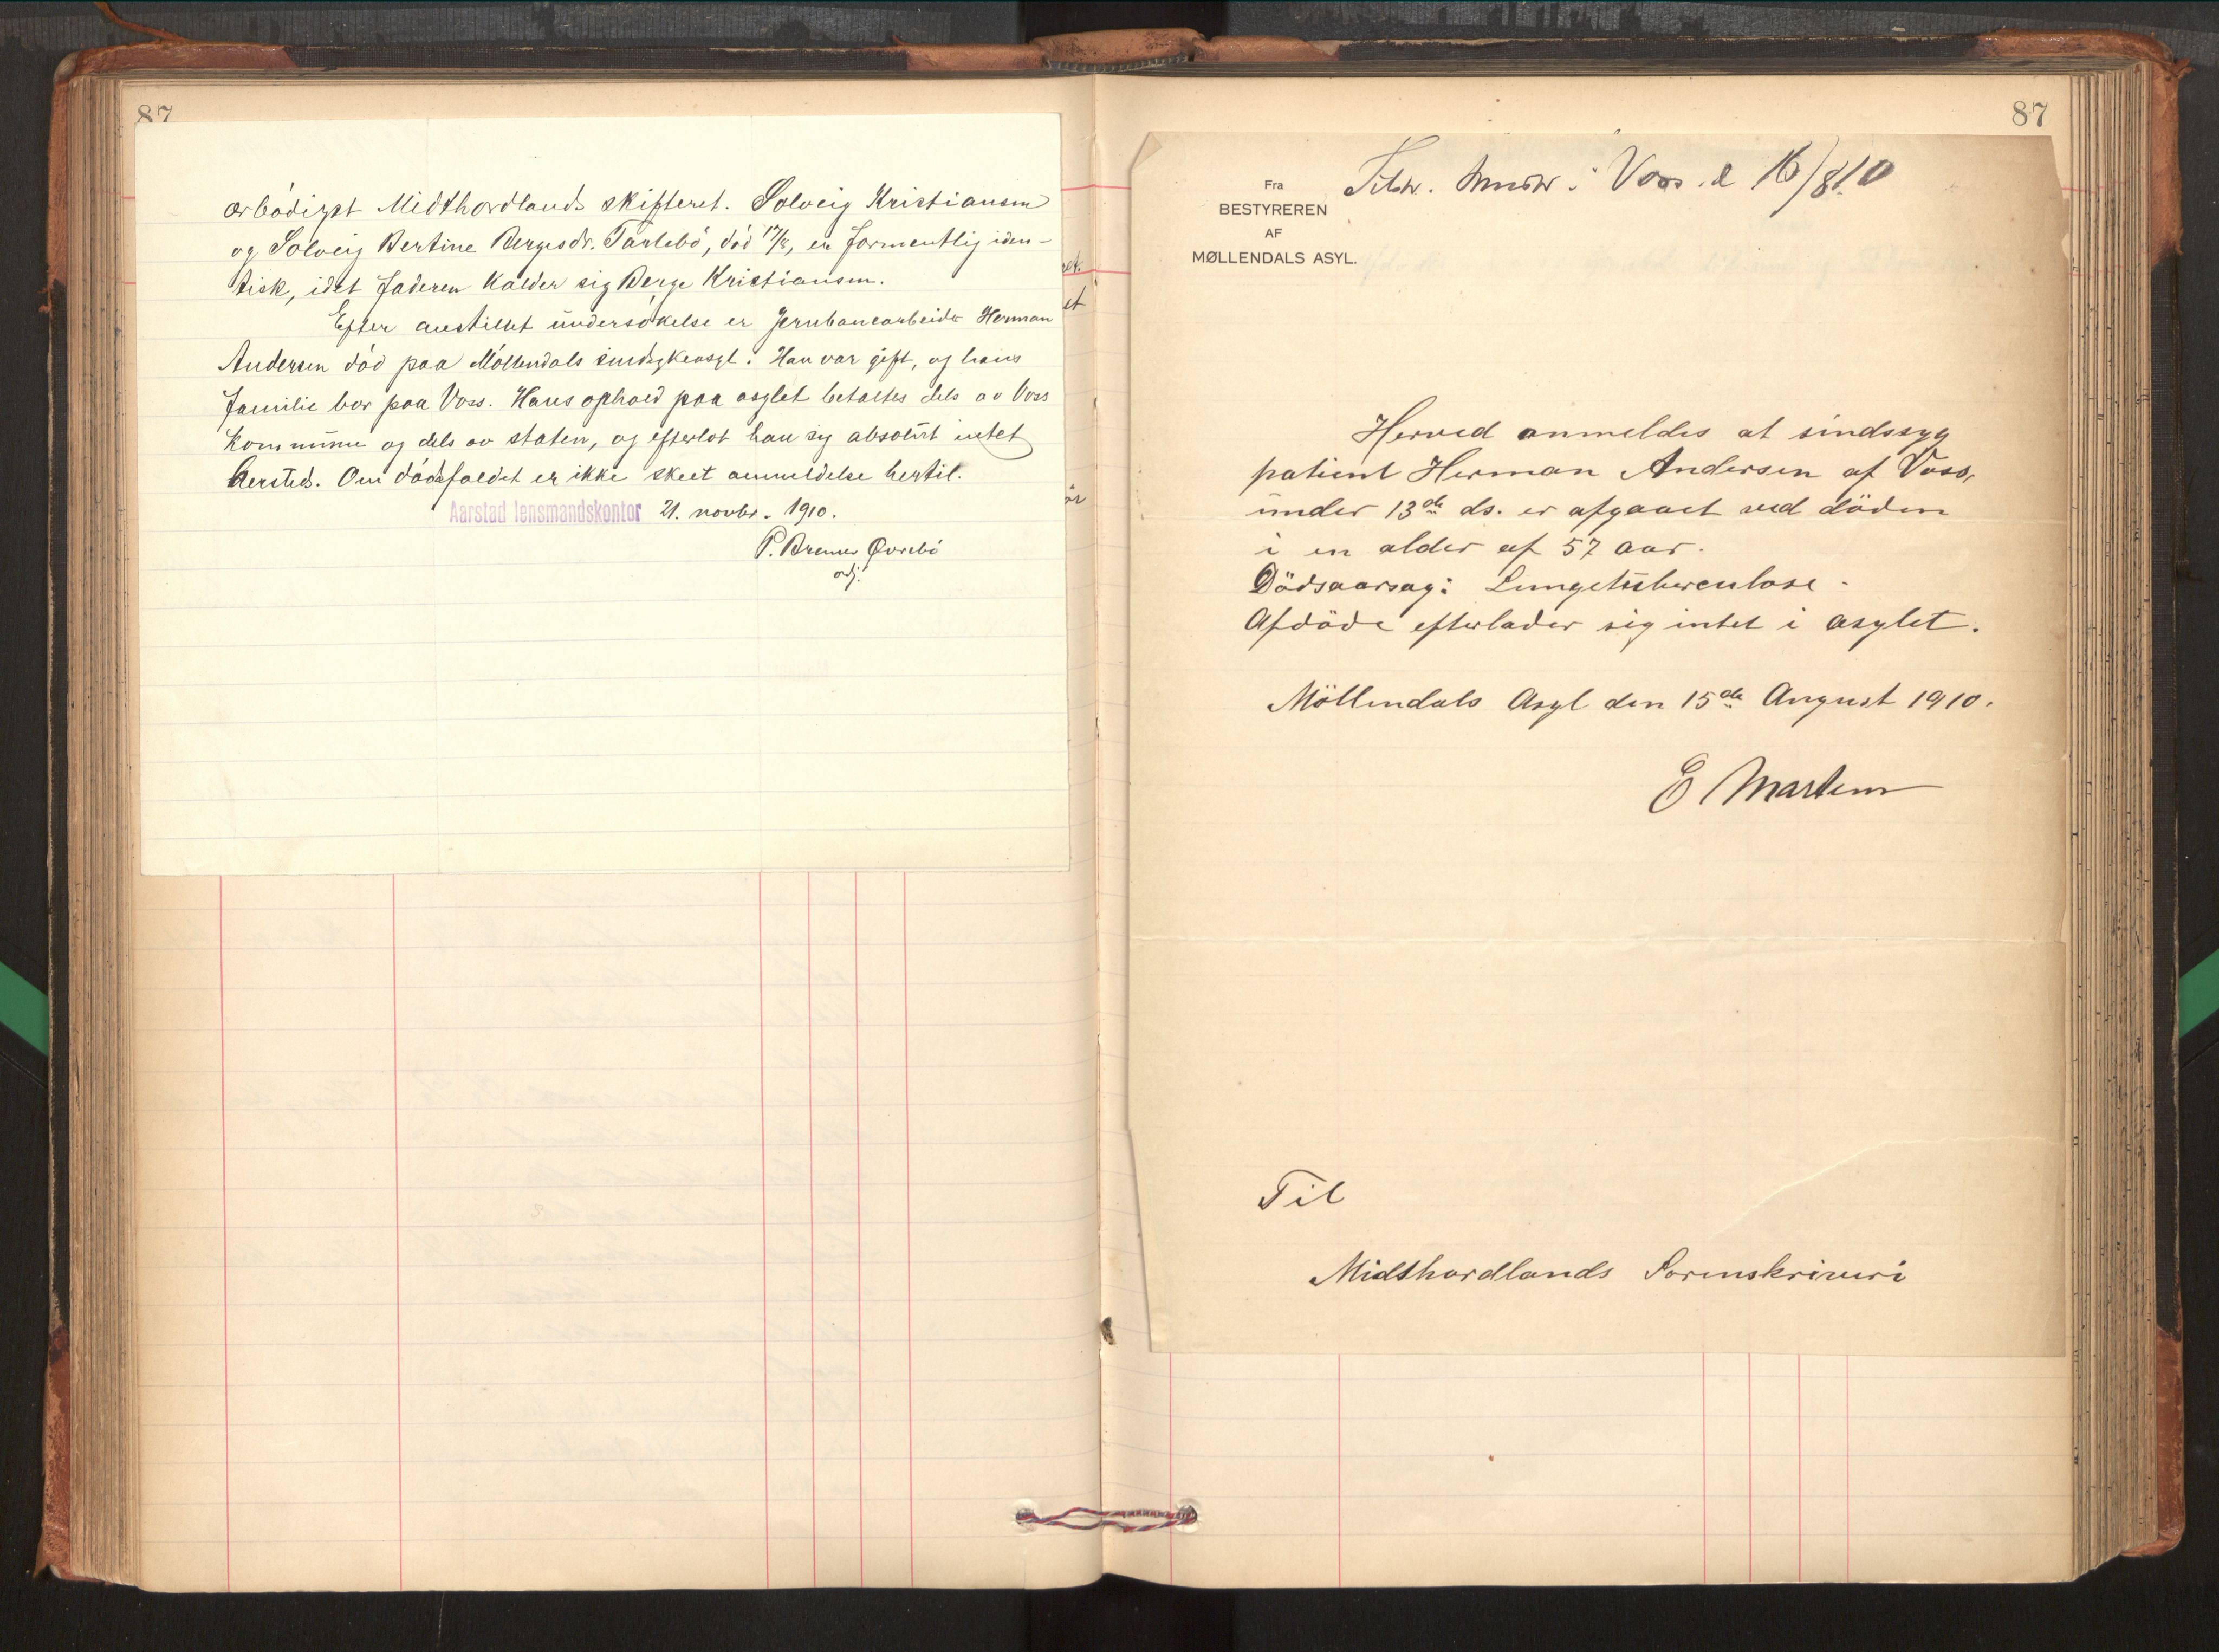 87
ærbödigst Midthordlands skifteret. Solveig Kristiansen
og Solveig Bertine Bergesdr. Tarlebö, död 17/8, er formentlig iden-
tisk, idet faderen kalder sig Berge Kristiansen.
Efter anstillet undersökelse er jernbanearbeider Herman
Andersen död paa Möllendals sindsykeasyl. Han var gift, og hans
familie bor paa Voss. Hans ophold paa asylet betaltes dels av Voss
kommune og dels av staten, og efterlot han sig absolut intet
hersted. Om dödsfaldet er ikke skeet anmeldelse hertil.
Aarstad lensmandskontor 21. novbr. 1910.
P. Bremer Øvrebö
adj.
ret.
et
87
Fra
BESTYREREN
AF
MØLLENDALS ASYL.
i Voss. d 16/8.10
Herved anmeldes at sindssyg
patient Herman Andersen af Voss,
under 13de ds. er afgaaet ved döden
i en alder af 57 aar.
Dödsaarsag: Lungetuberculose.
Afdöde efterlader sig intet i asylet.
Möllendals Asyl den 15de August 1910.
E Martens
Til
Midthordlands Sorenskriveri